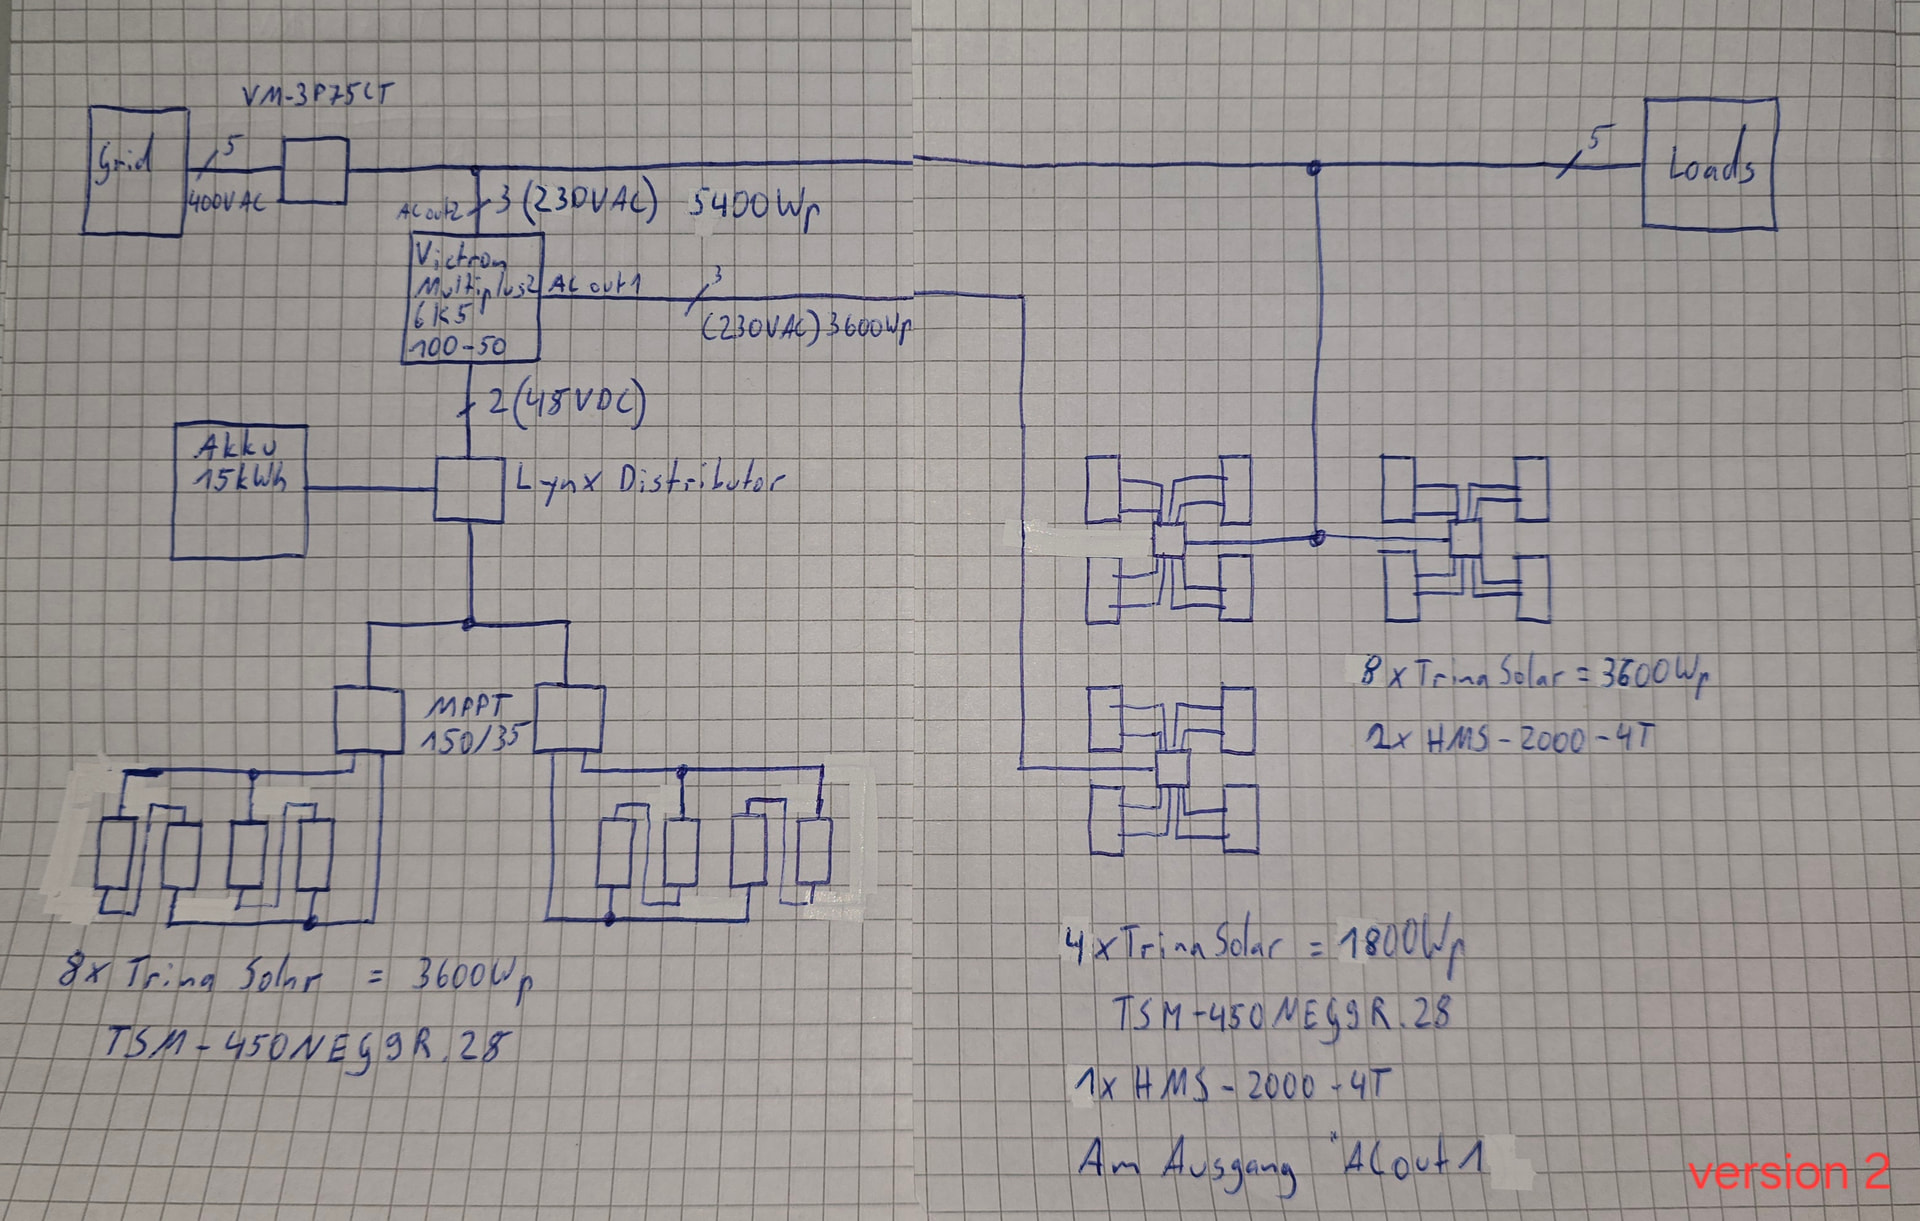 VM-3P75CT
Grid
5
400VAC
ACout2
3 (230VAC) 5400Wp
5
Loads
Victron
Multiplus2
6K5
100-50
ACout1
3
(230VAC) 3600Wp
2 (48VDC)
Akku
15kWh
Lynx Distributor
MPPT
150/35
8x Trina Solar = 3600Wp
TSM-450NEG9R.28
8x Trina Solar = 3600Wp
2x HMS-2000-4T
4x Trina Solar = 1800Wp
TSM-450NEG9R.28
1x HMS-2000-4T
Am Ausgang "ACout1
version 2